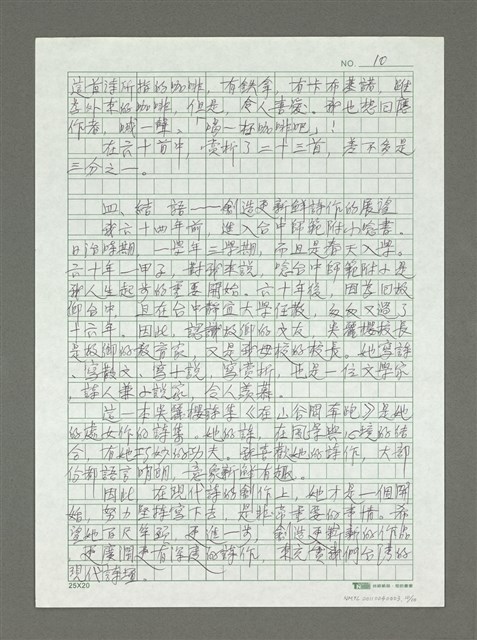 NO. 10
這首詩所指的咖啡，有鐵拿，有卡布基諾，雖
是外來的咖啡，但是，令人喜愛。我也想回應
作者，喊一聲、「喝一杯咖啡吧」！
在六十首中，賞析了二十三首，差不多是
三分之一。
四、結語——創造更新鮮詩作的展望
我六十四年前，進入台中師範附小唸書。
日治時期，一學年三學期，而且是春天入學。
六十年一甲子，對我來說，唸台中師範附小是
我人生起步的重要開始。六十年後，因為回故
鄉台中，且在台中靜宜大學任教，匆匆又過了
十六年。因此，認識故鄉的文友，
校長
是故鄉的教育家，又是我母校的校長。她寫詩
、寫散文，寫小說，寫賞析，也是一位文學家
，詩人兼小說家，令人羨慕。
這一本
詩集《在山谷間奔跑》是她
的處女作的詩集。她的詩，在風景與心境的結
合，有她巧妙的功夫。我喜歡她的詩作，大部
份都語言明朗，意象新鮮有趣。
因此，在現代詩的創作上，她才是一個開
始，努力堅持寫下去，是非常重要的事情。希
望她百尺竿頭，更進一步，創造更新的作品
，更廣闊更有深度的詩作，來充實我們台灣的
現代詩壇。
25X20